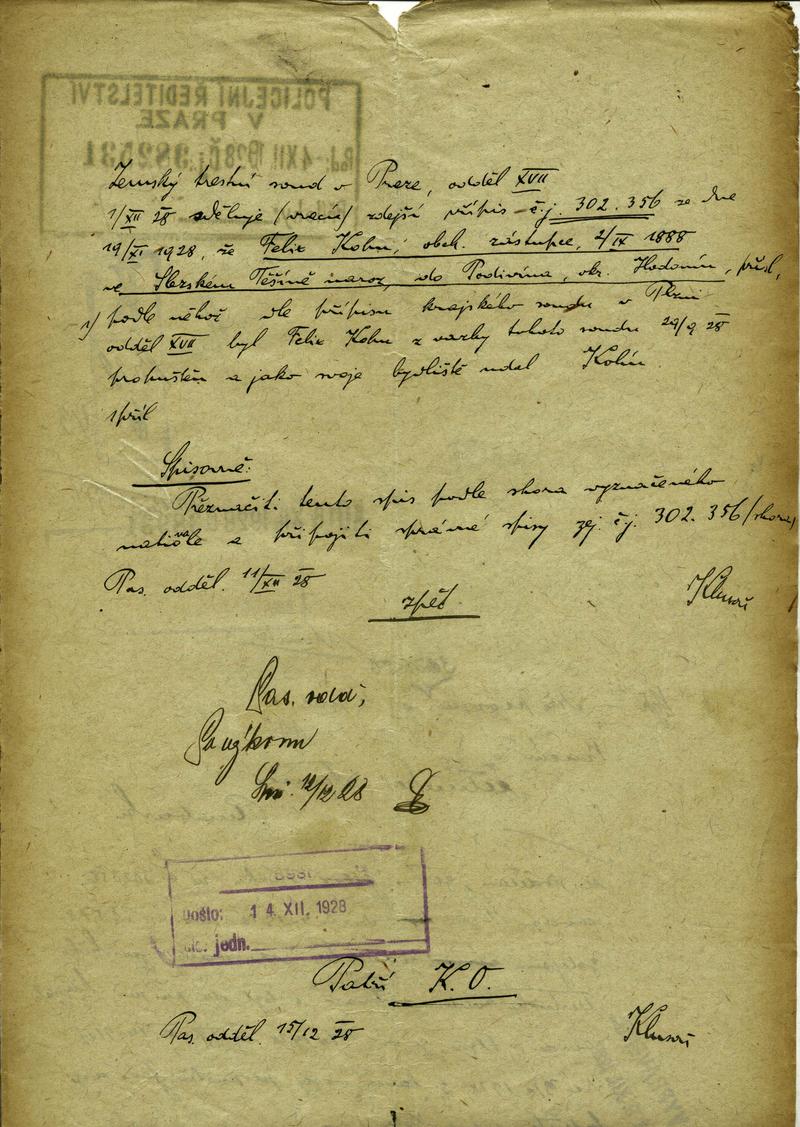 POLICEJNÍ ŘEDITELSTVÍ
V PRAZE
4 XII 1928
Zemský trestní soud v Praze, odděl XVII
1/XII 28 sděluje (vrací) zdejší přípis č.j. 302.356 ze dne
19/XI 1928, že Felix Kohn, obch. zástupce, 2/IX 1888
ve Slezském Těšíně naroz, do Podivína, okr. Hodonín, přísl,
1) podle něhož dle přípisu krajského soudu v Plzni
odděl XVII byl Felix Kohn z vazby tohoto soudu 29/9 28
propuštěn a jako svoje bydliště udal Kolín
1 příl
Spisovně:
Přeznačiti tento spis podle shora vyznačeného
nationale a připojiti správné spisy zej. č.j. 302.356 (shora)
Pas. odděl. 11/XII 28
zpět
Pas. odd,
12/12 28
Došlo: 14 XII. 1928
jedn.
Patří K. O.
Pas. odděl. 15/12 28